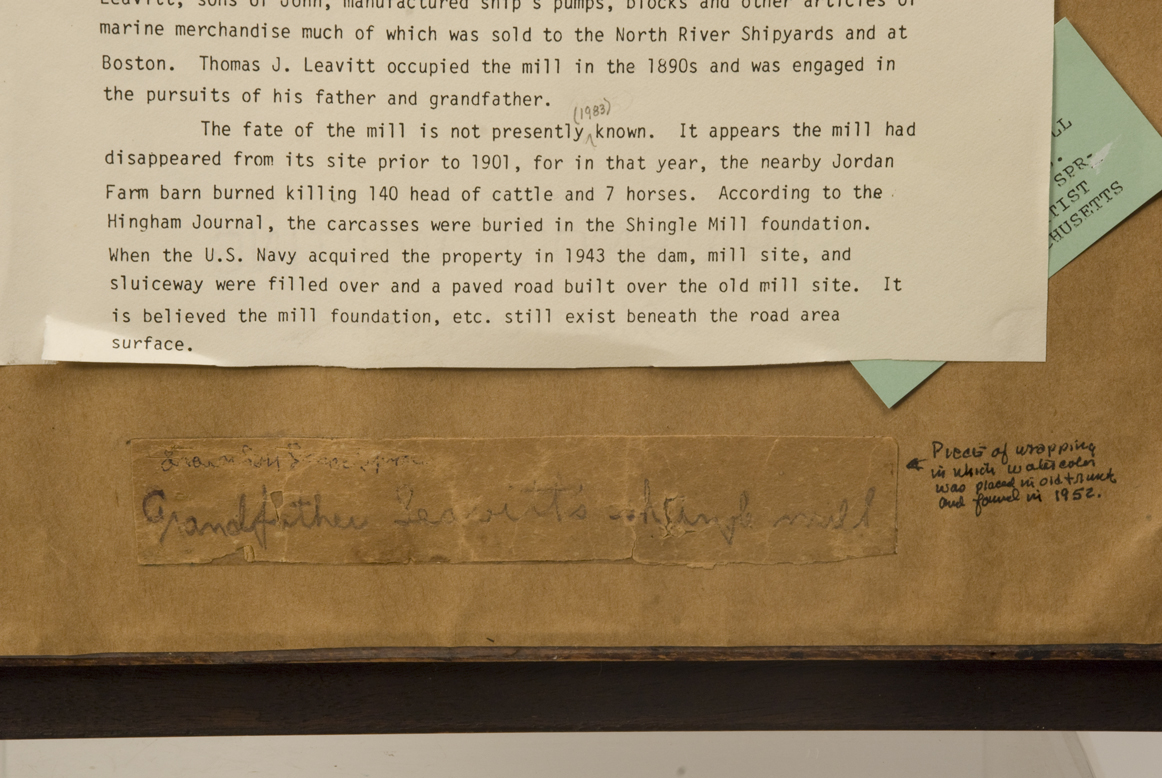 Leavitt, sons of John, manufactured ship's pumps, blocks and other articles of
marine merchandise much of which was sold to the North River Shipyards and at
Boston. Thomas J. Leavitt occupied the mill in the 1890s and was engaged in
the pursuits of his father and grandfather.
(1983)
The fate of the mill is not presently known. It appears the mill had
disappeared from its site prior to 1901, for in that year, the nearby Jordan
Farm barn burned killing 140 head of cattle and 7 horses. According to the
Hingham Journal, the carcasses were buried in the Shingle Mill foundation.
When the U.S. Navy acquired the property in 1943 the dam, mill site, and
sluiceway were filled over and a paved road built over the old mill site. It
is believed the mill foundation, etc. still exist beneath the road area
surface.
LL
SPR-
TIST
HUSETTS
Grandfather Leavitt's shingle mill
Pieces of wrapping
in which watercolor
was placed in old trunk
and found in 1952.